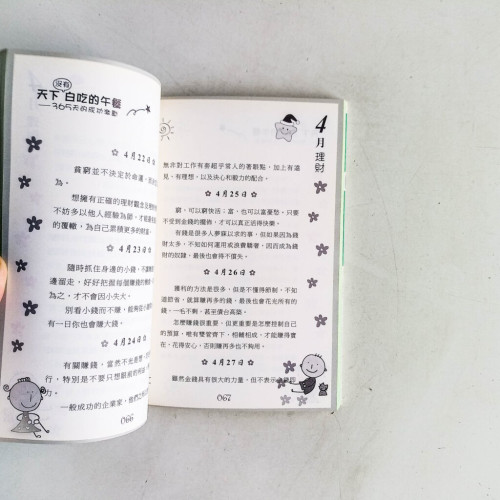 天下沒有白吃的午餐
——365天的成功激勵
4月22日
貧窮並不決定於命運，
為。
想擁有正確的理財觀念
不妨多以他人經驗為師，才能
的覆轍，為自己累積更多的財
4月23日
隨時抓住身邊的小錢，不讓
邊溜走，好好把握每個賺錢的
為之，才不會因小失大。
別看小錢而不賺，能夠
有一日你也會賺大錢。
4月24日
有關賺錢，當然不光是
行，特別是不要只想眼前的
一般成功的企業家，他們
066
4月理財
無非對工作有套超乎常人的著眼點，加上有遠
見、有理想，以及決心和毅力的配合。
4月25日
窮，可以窮快活；富，也可以富憂愁。只要
不受到金錢的擺佈，才可以真正活得快樂。
有錢是很多人夢寐以求的事，但如果因為錢
財太多，不知如何運用或浪費驕奢，因而成為錢
財的奴隸，最後也會得不償失。
4月26日
獲利的方法是很多，但是不懂得節制，不知
道節省，就算賺再多的錢，最後也會花光所有的
錢，一毛不剩，甚至債台高築。
怎麼賺錢很重要，但更重要是怎麼控制自己
的預算，唯有雙管齊下，相輔相成，才能賺得實
在、花得安心，否則賺再多也不夠用。
4月27日
雖然金錢具有很大的力量，但不表示
067